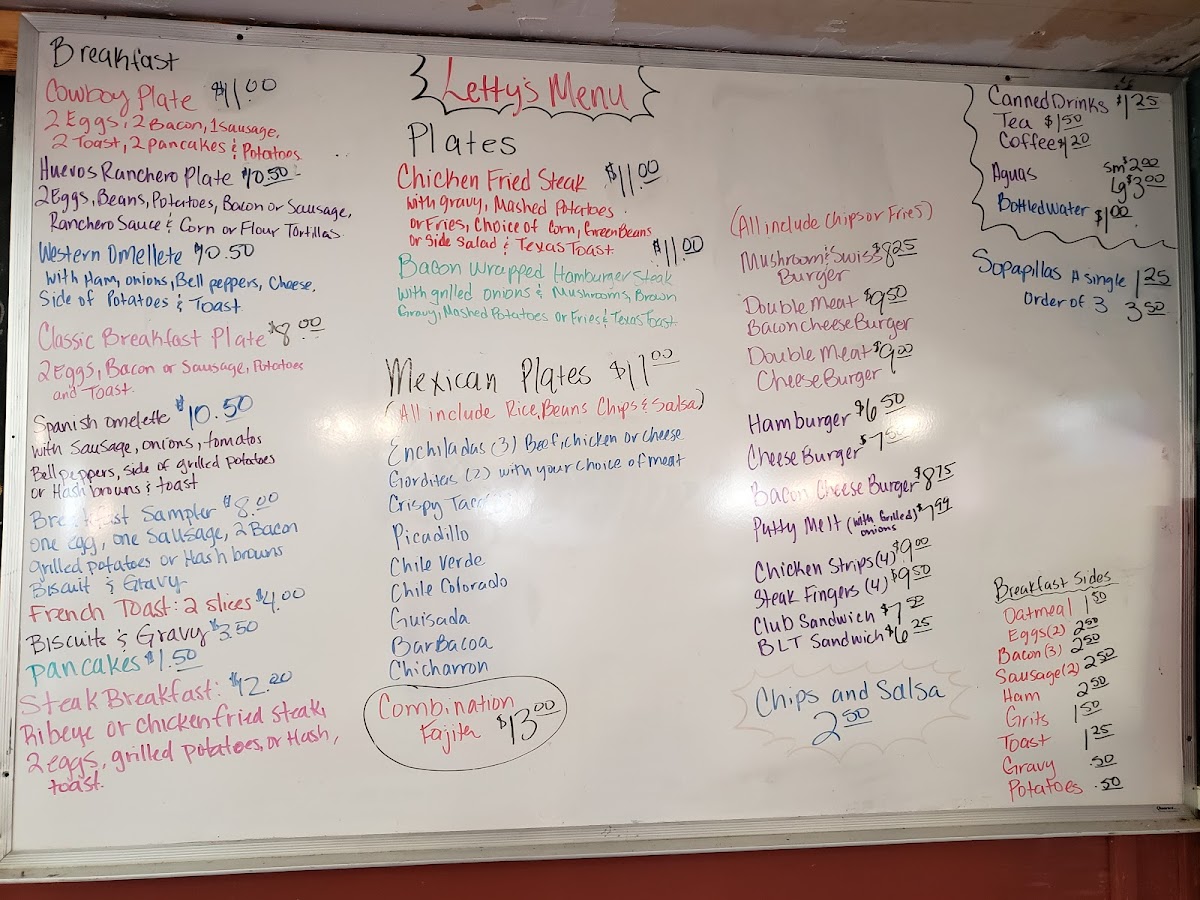 Breakfast
Cowboy Plate $11.00
2 Eggs, 2 Bacon, 1 Sausage,
2 Toast, 2 pancakes & Potatoes
Huevos Ranchero Plate $10.50
2 Eggs, Beans, Potatoes, Bacon or Sausage,
Ranchero Sauce & Corn or Flour Tortillas
Western Omellete $10.50
with Ham, onions, Bell peppers, Cheese,
Side of Potatoes & Toast
Classic Breakfast Plate $8.00
2 Eggs, Bacon or Sausage, Potatoes
and Toast.
Spanish omelette $10.50
with Sausage, onions, tomatos
Bell peppers, side of grilled potatoes
or Hash browns & toast
Breakfast Sampler $8.00
one egg, one Sausage, 2 Bacon
grilled potatoes or Hash browns
Biscuit & Gravy
French Toast: 2 slices $4.00
Biscuits & Gravy $3.50
pancakes $1.50
Steak Breakfast: $12.00
Ribeye or chicken fried steak,
2 eggs, grilled potatoes, or Hash,
toast.
Letty's Menu
Plates
Chicken Fried Steak $11.00
with gravy, Mashed Potatoes
or Fries, Choice of Corn, Green Beans
or Side Salad & Texas Toast $11.00
Bacon Wrapped Hamburger Steak
with grilled onions & Mushrooms, Brown
Gravy, Mashed Potatoes or Fries & Texas Toast
Mexican Plates $11.00
(All include Rice, Beans Chips & Salsa)
Enchiladas (3) Beef, chicken or cheese
Gorditas (2) with your choice of meat
Crispy
Picadillo
Chile Verde
Chile Colorado
Guisada
BarBacoa
Chicharron
Combination
Fajita $13.00
(All include Chips or Fries)
Mushroom & Swiss $8.25
Burger
Double Meat $9.50
Bacon Cheese Burger
Double Meat $9.00
Cheese Burger
Hamburger $6.50
Cheese Burger $7.50
Bacon Cheese Burger $8.75
Patty Melt (with Grilled onions) $7.99
Chicken Strips (4) $9.00
Steak Fingers (4) $9.50
Club Sandwich $7.50
BLT Sandwich $6.25
Chips and Salsa
2.50
Canned Drinks $1.25
Tea $1.50
Coffee $1.20
Aguas sm $2.00
Lg $3.00
Bottled Water $1.00
Sopapillas A single 1.25
Order of 3 3.50
Breakfast Sides
Oatmeal 1.50
Eggs (2) 2.50
Bacon (3) 2.50
Sausage (2) 2.50
Ham 2.50
Grits 1.50
Toast 1.25
Gravy .50
Potatoes .50